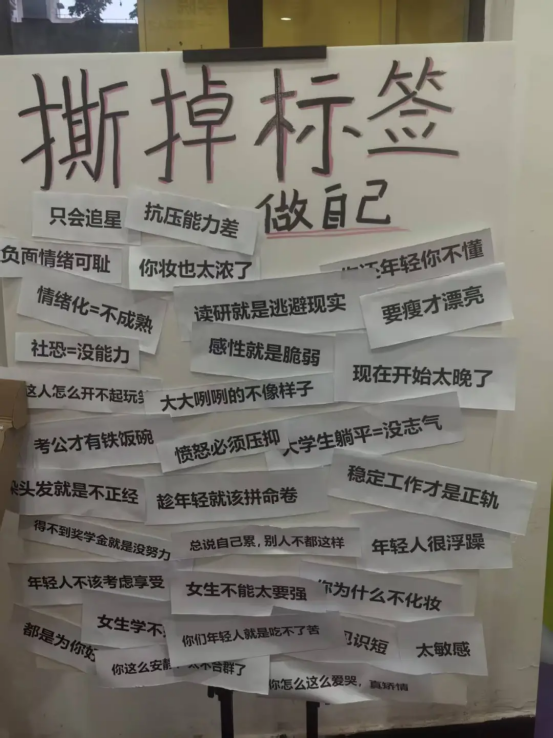 撕掉标签
做自己
只会追星
抗压能力差
负面情绪可耻
你妆也太浓了
还年轻你不懂
情绪化=不成熟
读研就是逃避现实
要瘦才漂亮
社恐=没能力
感性就是脆弱
现在开始太晚了
这人怎么开不起玩
大大咧咧的不像样子
考公才有铁饭碗
愤怒必须压抑
大学生躺平=没志气
头发就是不正经
趁年轻就该拼命卷
稳定工作才是正轨
得不到奖学金就是没努力
总说自己累，别人不都这样
年轻人很浮躁
年轻人不该考虑享受
女生不能太要强
你为什么不化妆
都是为你好
女生学不
你们年轻人就是吃不了苦
识短
太敏感
你这么安静
不合群了
你怎么这么爱哭，真矫情